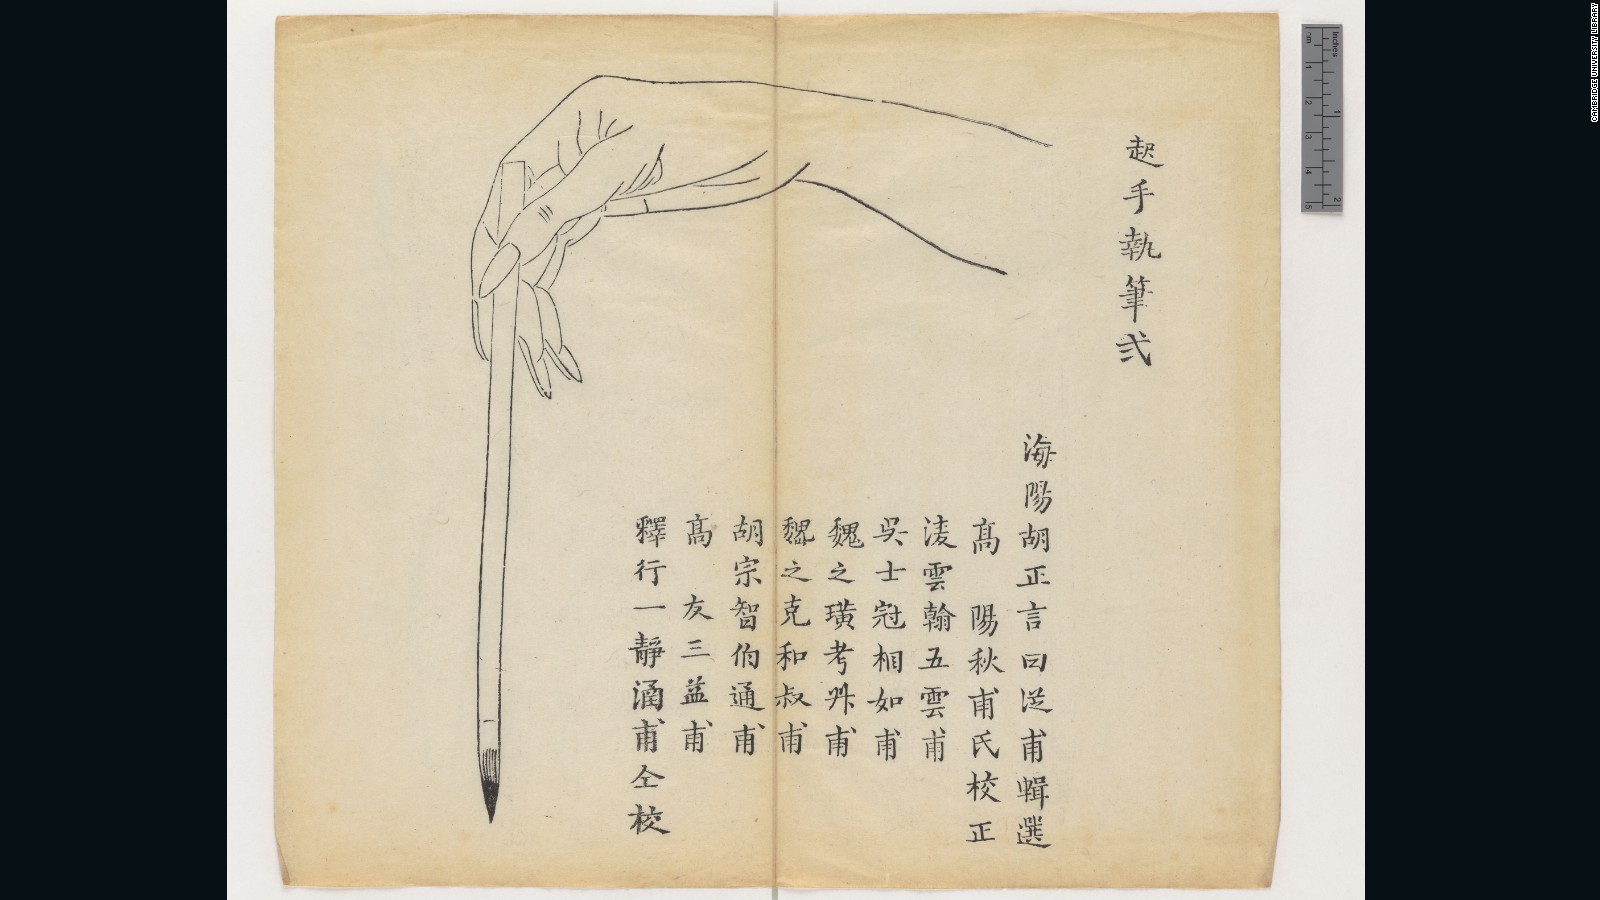 起手執筆弍
海陽胡正言曰從甫輯選
高陽秋甫氏校正
淩雲翰五雲甫
吳士冠相如甫
魏之璜考叔甫
魏之克和叔甫
胡宗智伯通甫
高友三益甫
釋行一靜涵甫仝校
Inches
1
2
mm
1
2
3
4
5
CAMBRIDGE UNIVERSITY LIBRARY